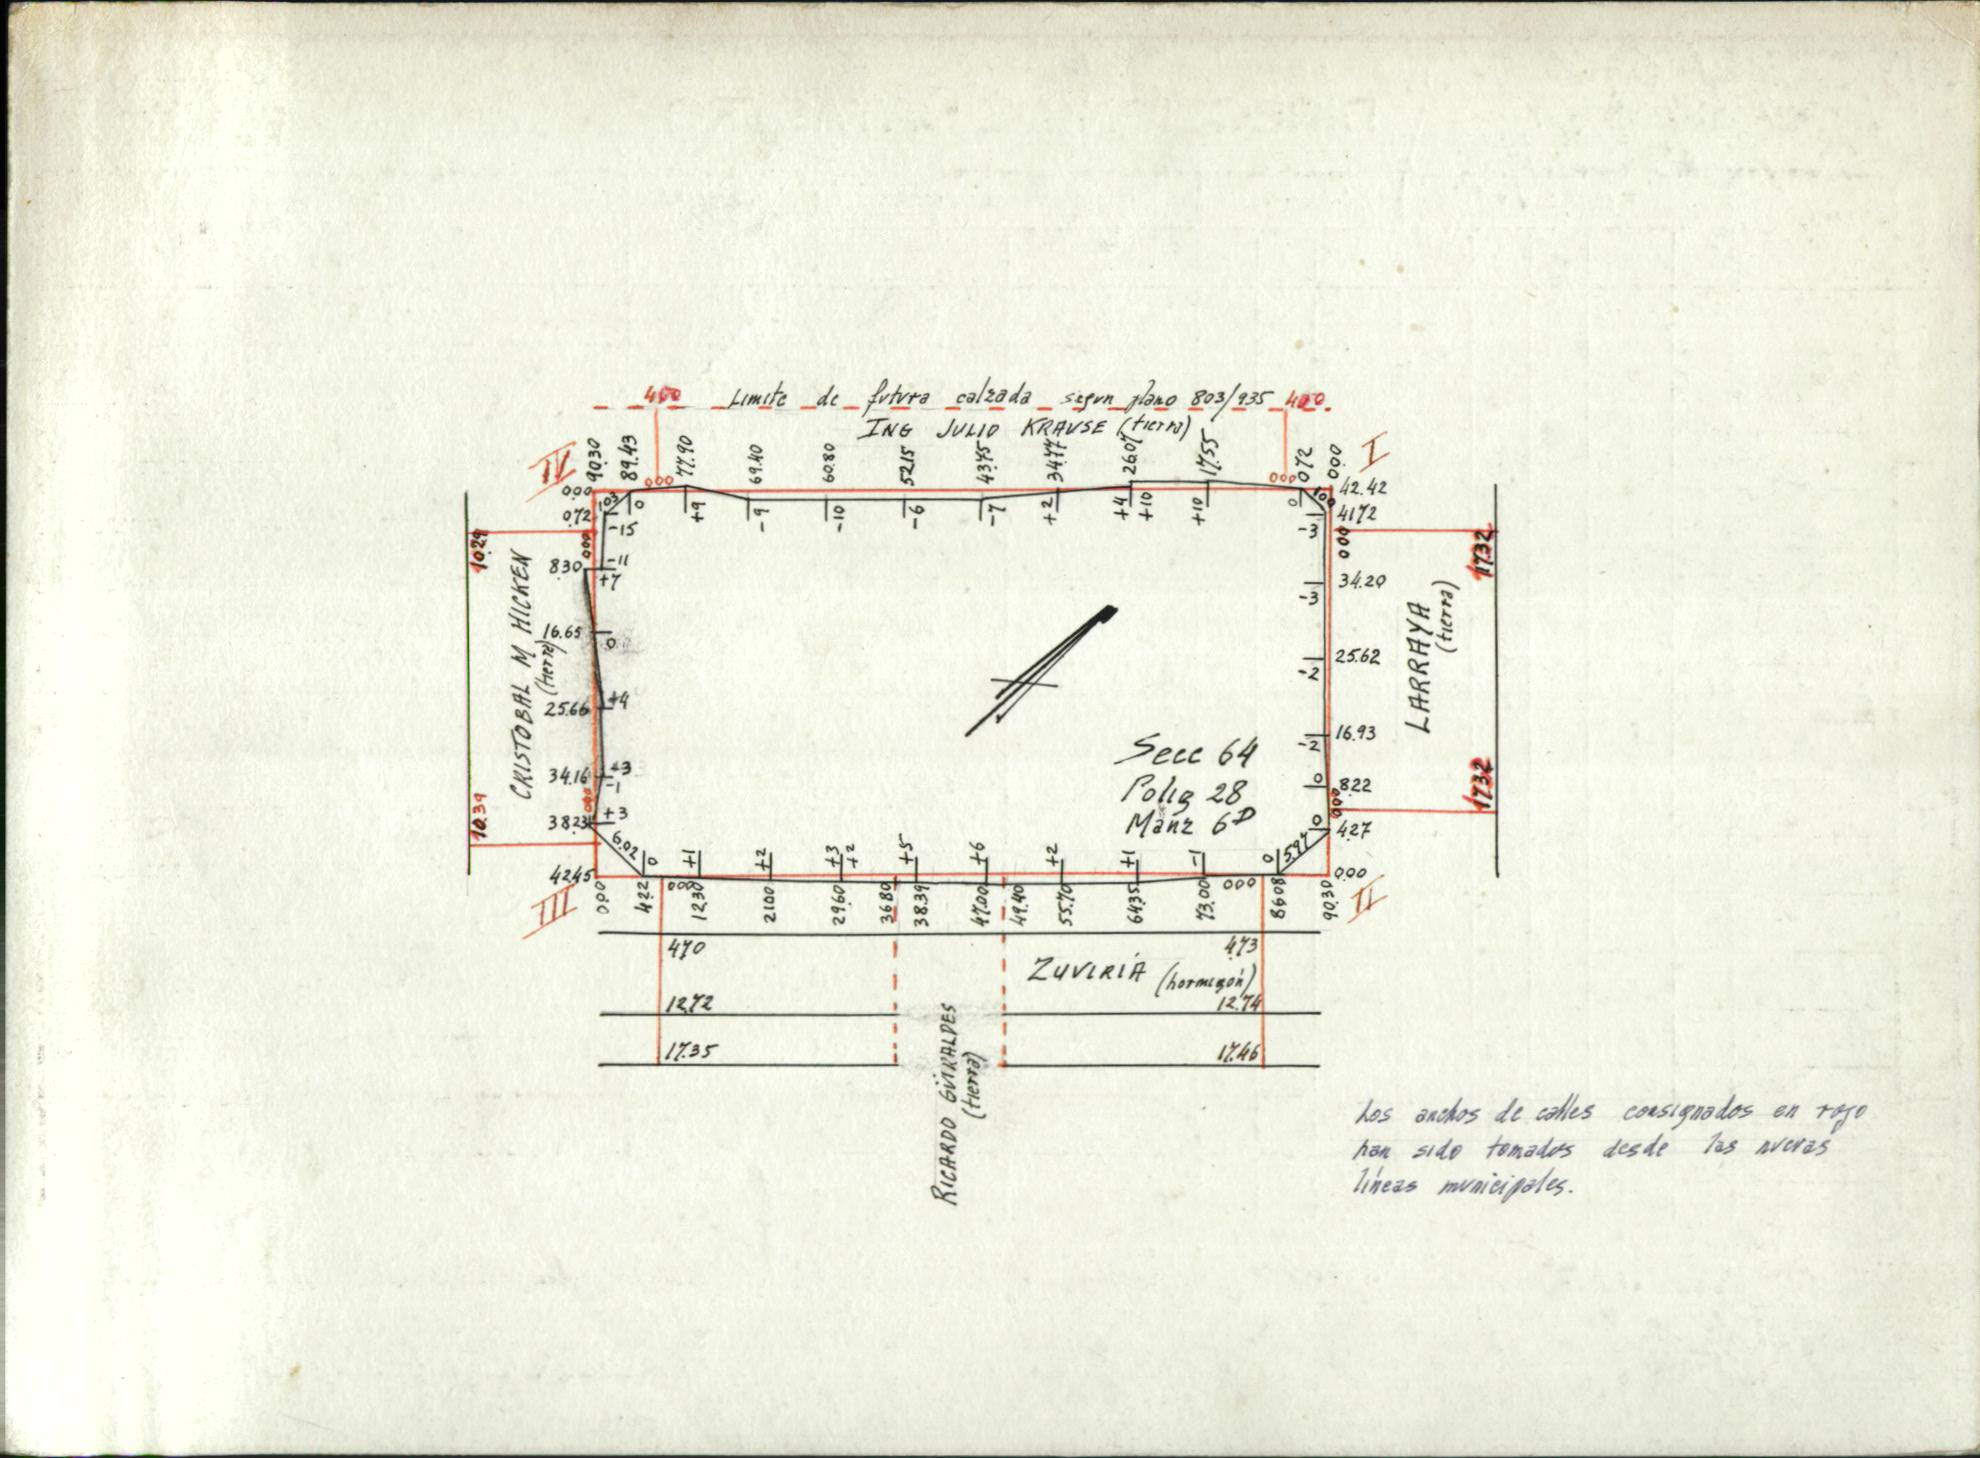 400 Limite de futura calzada segun plano 803/935 400
ING JULIO KRAUSE (tierra)
IV 90.30 89.43 000 77.90 69.40 60.80 52.15 43.75 34.77 26.07 17.55 000 0.72 0.00 I
0.00 1.03 0 +9 -9 -10 -6 -7 +2 +4 +10 +10 0 100 42.42
0.72 -15 -3 41.72
10.29 000 000 17.32
8.30 -11 +7 -3 34.20
16.65 0 -2 25.62
CRISTOBAL M HICKEN (tierra)
LARRAYA (tierra)
25.66 +4 -2 16.93
34.16 +3 -1 0 8.22
10.39 000 000 17.32
38.23 +3 0 4.27
Secc 64
Polig 28
Manz 6D
6.02 0 +1 +2 +3 +2 +5 +6 +2 +1 -1 0 5.97
42.45 0.00
III 0.00 4.22 000 12.30 21.00 29.60 36.80 38.39 47.00 49.40 55.70 64.35 73.00 000 86.08 90.30 II
4.70 4.73
ZUVIRÍA (hormigón)
12.72 12.74
17.35 17.46
RICARDO GÜIRALDES (tierra)
Los anchos de calles consignados en rojo
han sido tomados desde las nuevas
líneas municipales.